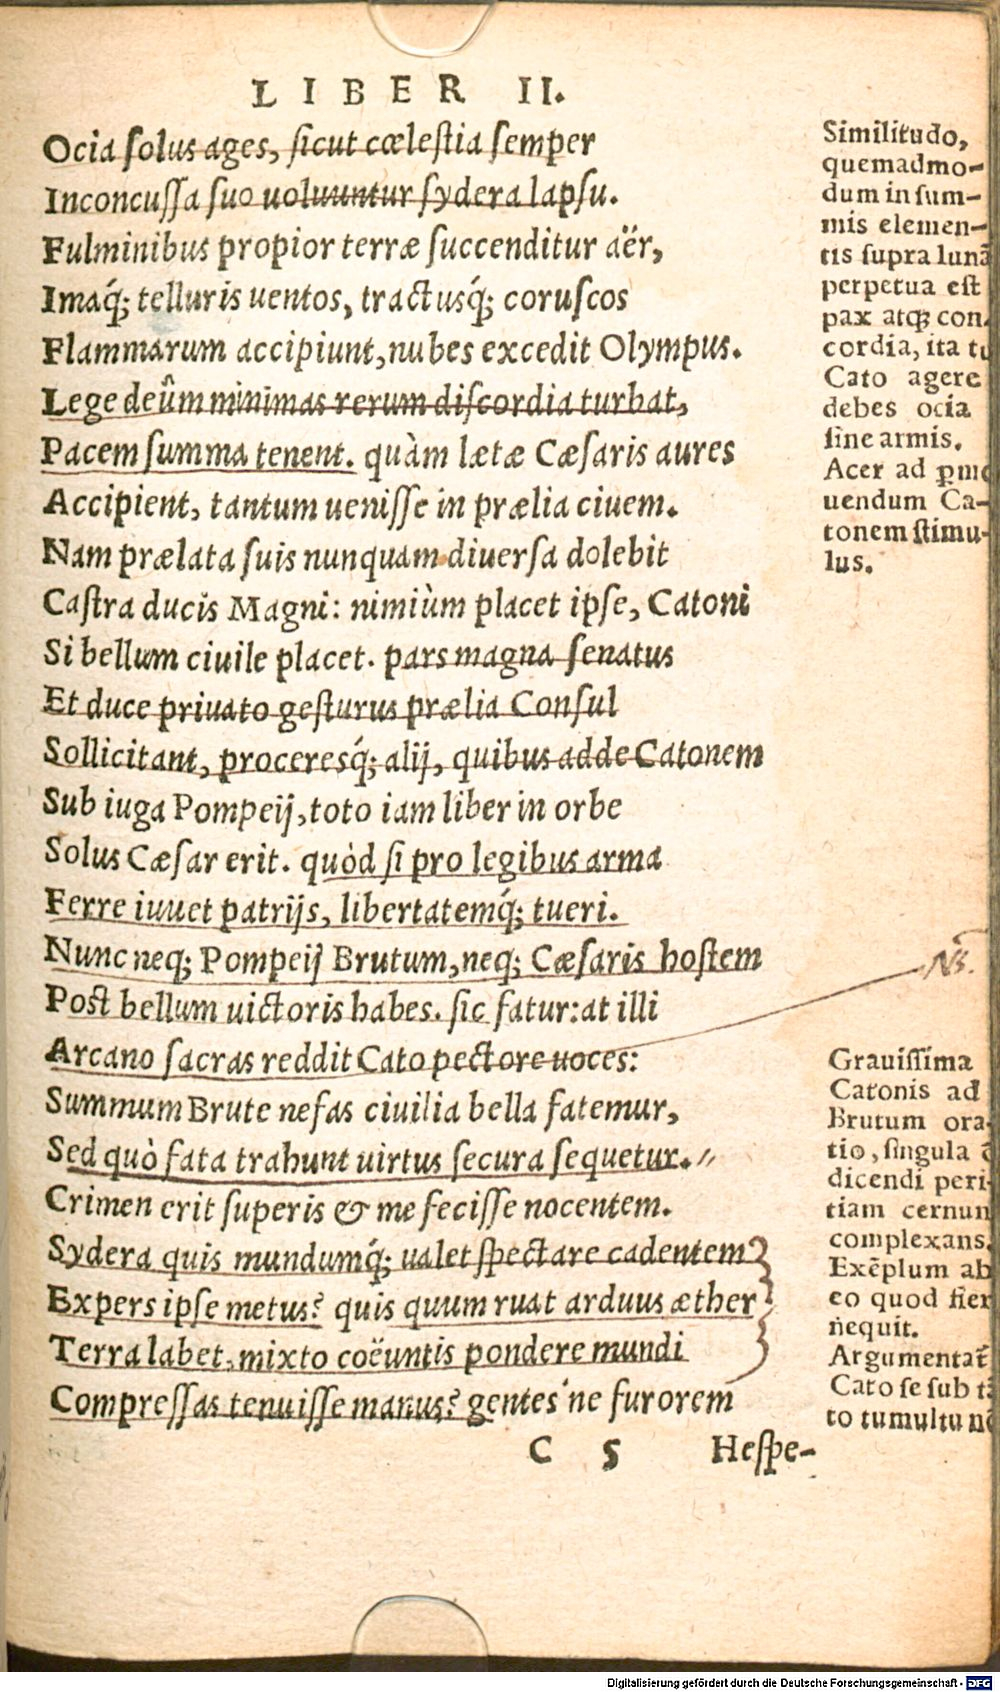 LIBER II.
Ocia solus ages, sicut cœlestia semper
Inconcussa suo uoluuntur sydera lapsu.
Fulminibus propior terræ succenditur aër,
Imaq́; telluris uentos, tractusq́; coruscos
Flammarum accipiunt, nubes excedit Olympus.
Lege deûm minimas rerum discordia turbat,
Pacem summa tenent. quàm lætæ Cæsaris aures
Accipient, tantum uenisse in prælia ciuem.
Nam prælata suis nunquam diuersa dolebit
Castra ducis Magni: nimiùm placet ipse, Catoni
Si bellum ciuile placet. pars magna senatus
Et duce priuato gesturus prælia Consul
Sollicitant, proceresq́; alij, quibus adde Catonem
Sub iuga Pompeij, toto iam liber in orbe
Solus Cæsar erit. quòd si pro legibus arma
Ferre iuuet patrijs, libertatemq́; tueri.
Nunc neq; Pompeij Brutum, neq; Cæsaris hostem
Post bellum uictoris habes. sic fatur: at illi
Arcano sacras reddit Cato pectore uoces:
Summum Brute nefas ciuilia bella fatemur,
Sed quò fata trahunt uirtus secura sequetur.
Crimen erit superis & me fecisse nocentem.
Sydera quis mundumq́; ualet spectare cadentem
Expers ipse metus? quis quum ruat arduus æther
Terra labet, mixto coëuntis pondere mundi
Compressas tenuisse manus? gentes'ne furorem
C 5 Hespe-
Similitudo,
quemadmo-
dum in sum-
mis elemen-
tis supra lunã
perpetua est
pax atq; con-
cordia, ita tu
Cato agere
debes ocia
sine armis.
Acer ad ꝑmo
uendum Ca-
tonem stimu-
lus.
Ns.
Grauissima
Catonis ad
Brutum ora-
tio, singula
dicendi peri-
tiam cernun
complexans.
Exẽplum ab
eo quod fier
nequit.
Argumentat̃
Cato se sub
to tumultu